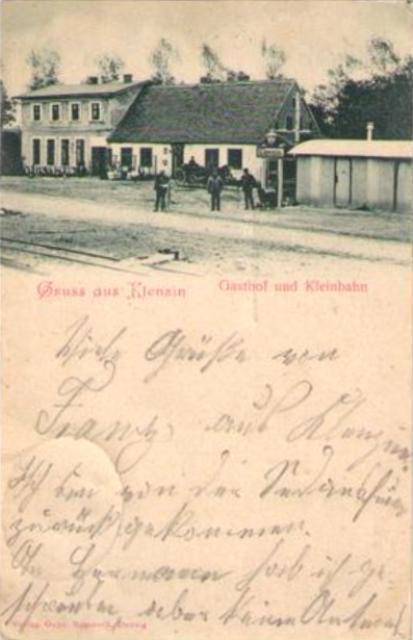 Gruss aus Klenzin
Gasthof und Kleinbahn
Viele Grüße von
Franz aus Klenzin.
Ich bin von der Sedanfeier
zurück gekommen.
An Hermann hab ich ge-
schrieben aber keine Antwort